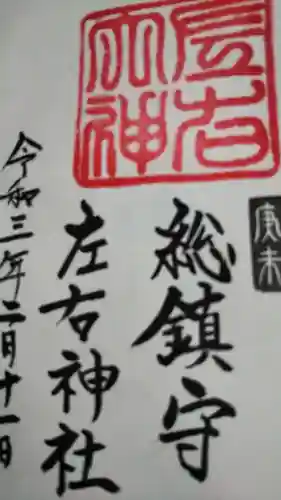 庚未
総鎮守
左右神社
令和三年二月十一日
右
神